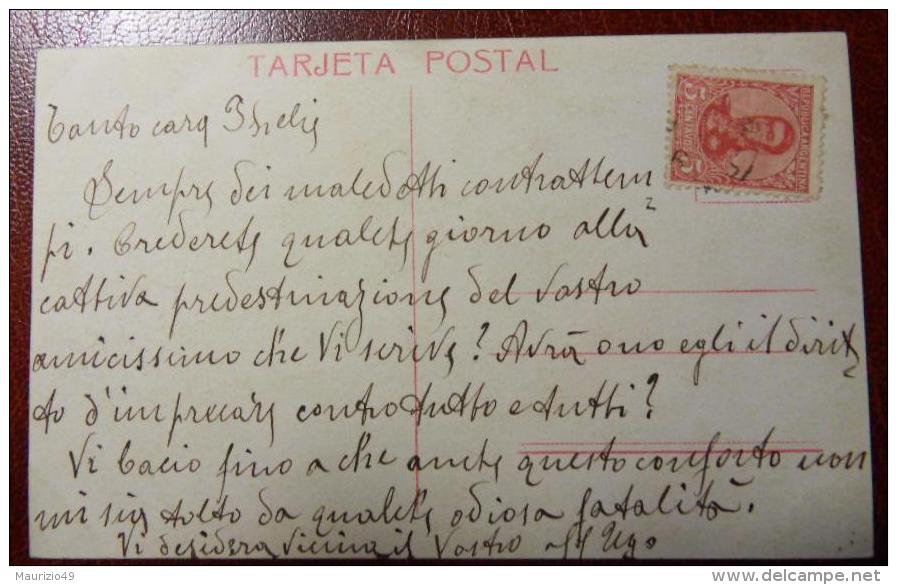 TARJETA POSTAL
REPUBLICA ARGENTINA
5 CENTAVOS 5
Tanto cara
Sempre dei maledetti contrattem
pi. Crederete qualche giorno alla
cattiva predestinazione del Vostro
amicissimo che Vi scrive? Avrà o no egli il dirit
to d'imprecare contro tutto e tutti?
Vi bacio fino a che anche questo conforto non
mi sia tolto da qualche odiosa fatalità.
Vi desidera vicina il Vostro Ugo
Maurizio49
delcampe.net